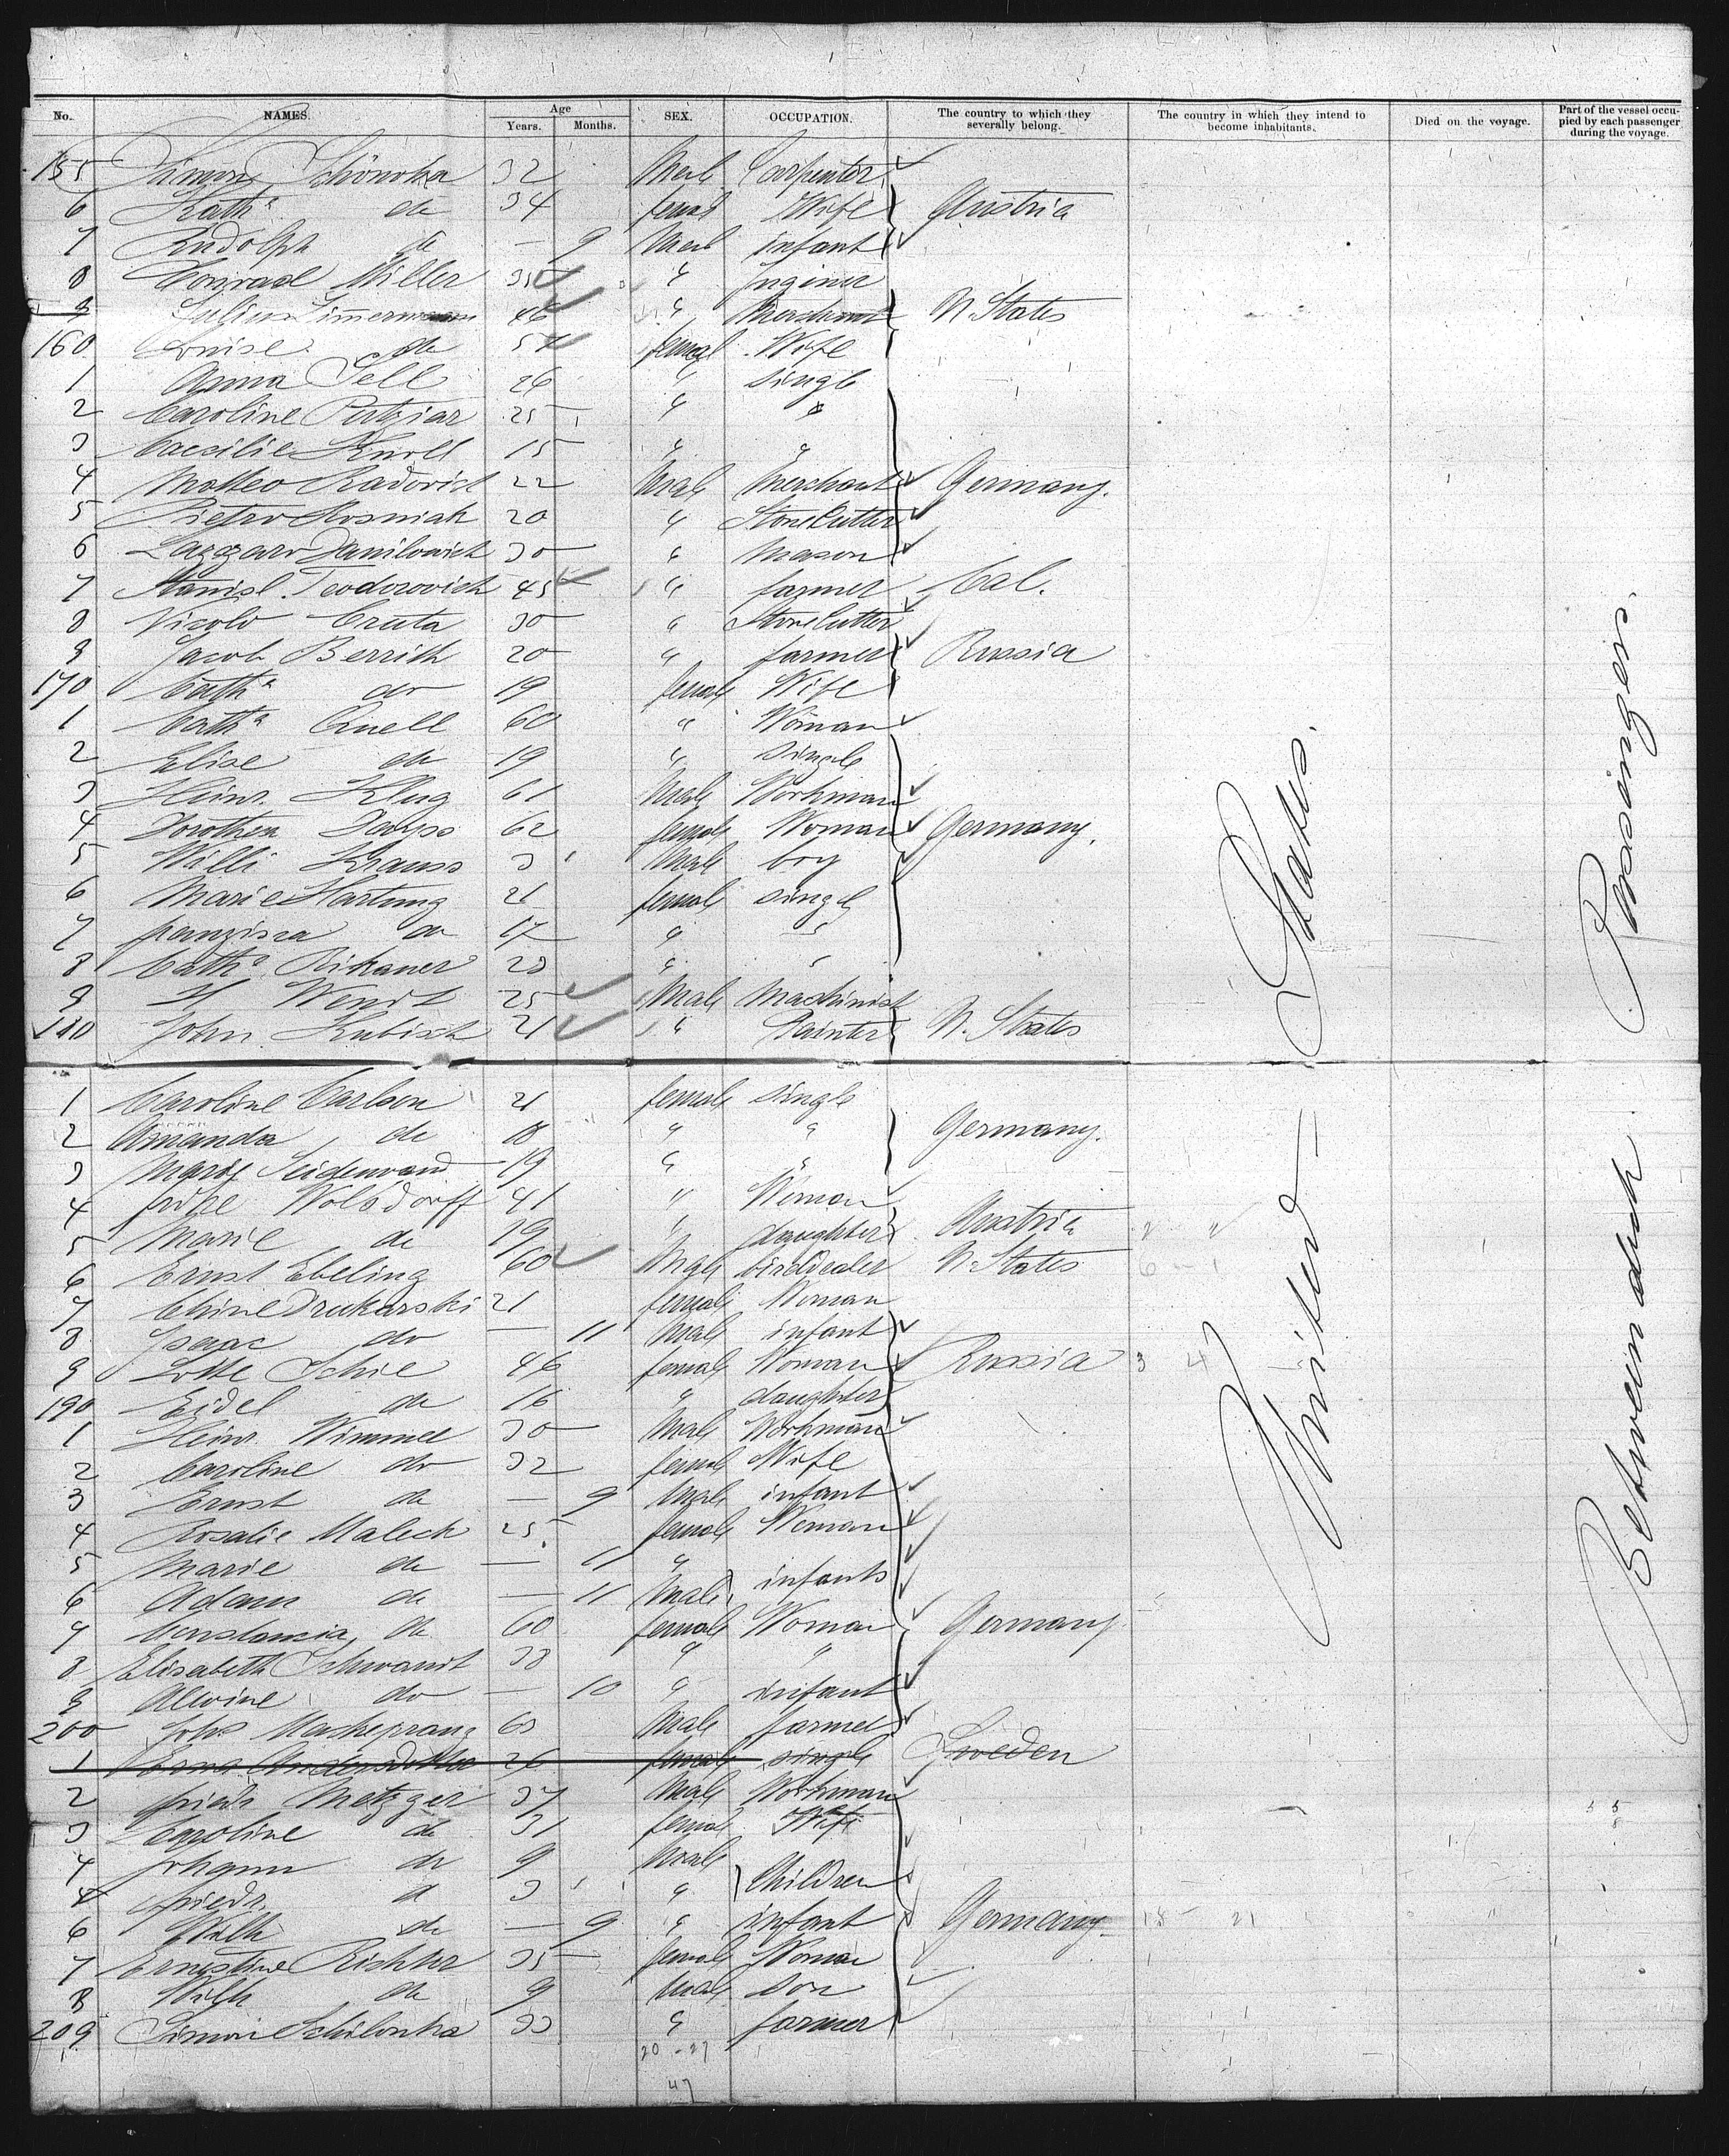 No. NAMES. Age Years. Months. SEX. OCCUPATION. The country to which they severally belong. The country in which they intend to become inhabitants. Died on the voyage. Part of the vessel occupied by each passenger during the voyage.
155 Simon Schönoka 32 Male Carpenter
6 Kath<sup>a</sup> do 34 female Wife Austria
7 Rudolph do — 9 Male infant
8 Conrad Miller 35 " Enginer
9 Julius Zimermann 46 " Merchant U. States
160 Louise do 54 female Wife
1 Anna Sell 26 " single
2 Caroline 25 " "
3 Caecilie Knoll 15 " "
4 Matteo Radovich 22 Male Merchant Germany.
5 Pietro Kosniak 20 " Stone Cutter
6 Lazzaro Danilovich 30 " Mason
7 Stanisl. Teodorovich 45 " farmer Cal.
8 Nicolo Cruta 30 " Stone Cutter
9 Jacob Berrith 20 " farmer Russia
170 Cath<sup>a</sup> do 19 female Wife
1 Cath<sup>a</sup> Quell 60 " Woman
2 Elise do 19 " single
3 Heinr. Klug 61 Male Workman
4 Dorothea 62 female Woman Germany.
5 Willi Krauss 3 Male boy
6 Marie Hartung 21 female single
7 Franzisca do 17 " "
8 Cath<sup>a</sup> Rikauer 28 " "
9 H Wendt 25 Male Machinist
180 John Kubisch 21 " Painter U. States
1 Caroline Carlson 21 female single
2 Amanda do 18 " " Germany.
3 Marie Seidenwand 19 " "
4 Wolsdorff 41 " Woman
5 Marie do 19 " daughter Austria
6 Ernst Ebeling 60 Male birddealer U. States
7 Chine Drukarski 21 female Woman
8 Isaac do — 11 Male infant
9 Lotte Schie 46 female Woman Russia 3 4
190 Eidel do 16 " daughter
1 Heinr. Wimmel 30 Male Workman
2 Caroline do 32 female Wife
3 Ernst do — 9 Male infant
4 Rosalie Malech 25 female Woman
5 Marie do — 11 " infants
6 Adam do — 11 Male
7 Constanzia do 60 female Woman Germany
8 Elisabeth Schwandt 38 " "
9 Alwine do — 10 " infant
200 Johs Markeprang 63 Male farmer
1 26 female single Sweden
2 Friedr Metzger 37 Male Workman
3 Caroline do 31 female Wife
4 Johann do 9 Male Children
4 Friedr. d 3 "
6 Wilh do — 9 " infant Germany 18 21
7 Ernestine Richter 35 female Woman
8 Wilh do 9 Male son
209 Simon Schilonka 33 " farmer
20 - 27
47
United States
Between deck Passengers.